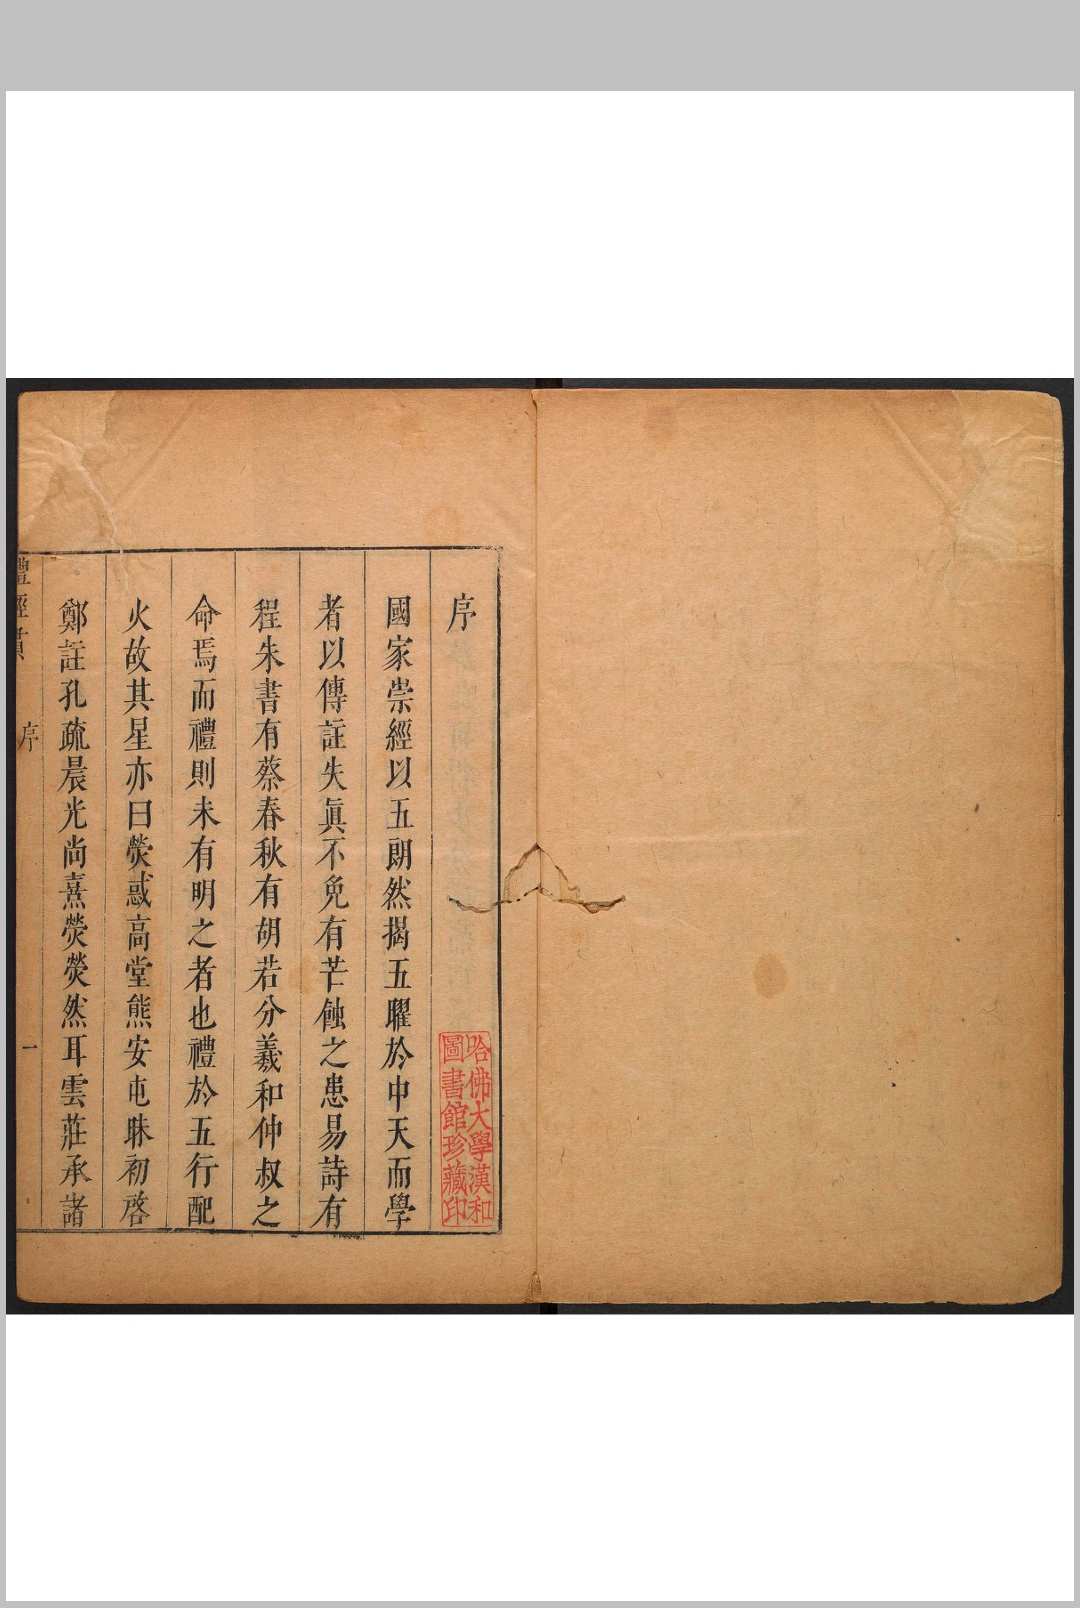 序
哈佛大學漢和
圖書館珍藏印
國家崇經以五朗然揭五曜於中天而學
者以傳註失眞不免有芒蝕之患易詩有
程朱書有蔡春秋有胡若分羲和仲叔之
命焉而禮則未有明之者也禮於五行配
火故其星亦曰熒惑高堂熊安屯昧初啓
鄭註孔疏晨光尚熹熒熒然耳雲莊承諸
禮經貫
序
一